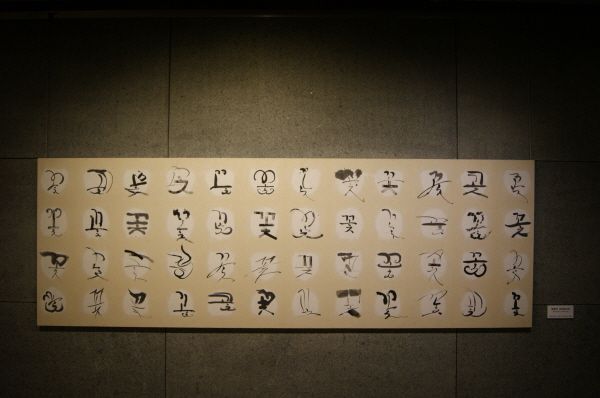 꽃 꽃 꽃 꽃 꽃 꽃 꽃 꽃 꽃 꽃 꽃 꽃
꽃 꽃 꽃 꽃 꽃 꽃 꽃 꽃 꽃 꽃 꽃 꽃
꽃 꽃 꽃 꽃 꽃 꽃 꽃 꽃 꽃 꽃 꽃 꽃
꽃 꽃 꽃 꽃 꽃 꽃 꽃 꽃 꽃 꽃 꽃 꽃